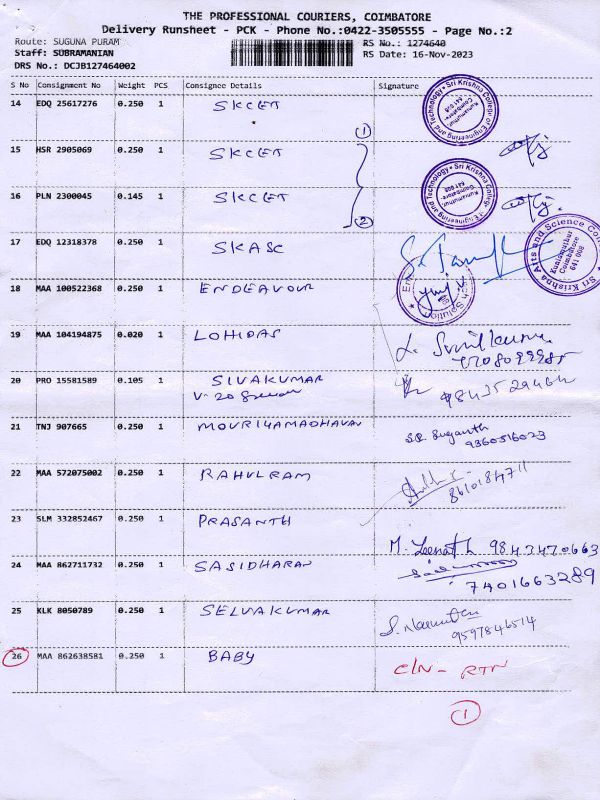 THE PROFESSIONAL COURIERS, COIMBATORE
Delivery Runsheet - PCK - Phone No.:0422-3505555 - Page No.:2
Route: SUGUNA PURAM RS No.: 1274640
Staff: SUBRAMANIAN RS Date: 16-Nov-2023
DRS No.: DCJB127464002
S No Consignment No Weight PCS Consignee Details Signature
14 EDQ 25617276 0.250 1 SKCET
Sri Krishna College of Engineering and Technology Kuniamuthur Coimbatore- 641 008
1
15 HSR 2905069 0.250 1 SKCET
16 PLN 2300045 0.145 1 SKCET
Sri Krishna College of Engineering and Technology Kuniamuthur Coimbatore- 641 008
2
17 EDQ 12318378 0.250 1 SKASC
Sri Krishna Arts and Science Kuniamuthur Coimbatore 641 008
18 MAA 100522368 0.250 1 ENDEAVOUR
19 MAA 104194875 0.020 1 LOHIDAS
20 PRO 15581589 0.105 1 SIVAKUMAR
21 TNJ 907665 0.250 1 MOURIYAMADHAVAN
S.R. Suganth
9360516023
22 MAA 572075002 0.250 1 RAHULRAM
8610184711
23 SLM 332852467 0.250 1 PRASANTH
24 MAA 862711732 0.250 1 SASIDHARAN
7401663289
25 KLK 8050789 0.250 1 SELVAKUMAR
9597846514
26 MAA 862638581 0.250 1 BABY C/N- RTN
1